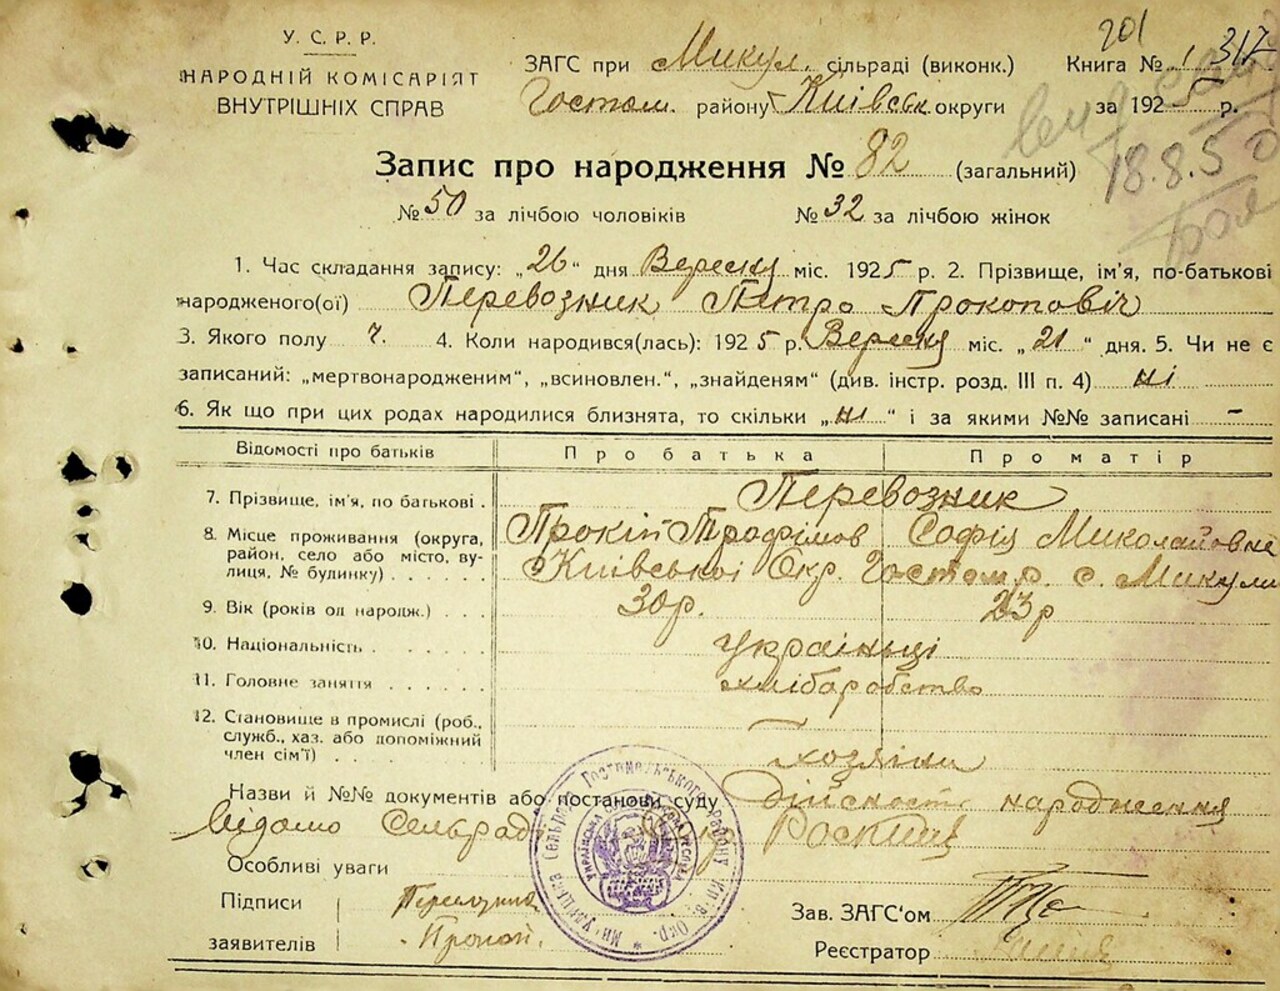 У. С. Р. Р.
НАРОДНІЙ КОМІСАРІЯТ
ВНУТРІШНІХ СПРАВ
201
ЗАГС при Микул. сільраді (виконк.) Книга № 1 317
Гостом. району Київськ округи за 1925 р.
18.8.50
Запис про народження № 82 (загальний)
№ 50 за лічбою чоловіків № 32 за лічбою жінок
1. Час складання запису: „26“ дня Вересня міс. 1925 р. 2. Прізвище, ім'я, по-батькові
народженого(ої) Перевозник Петро Прокопович
3. Якого полу ч. 4. Коли народився(лась): 1925 р. Вересня міс. „21“ дня. 5. Чи не є
записаний: „мертвонародженим“, „всиновлен.“, „знайденям“ (див. інстр. розд. III п. 4) ні
6. Як що при цих родах народилися близнята, то скільки „ні“ і за якими №№ записані –
Відомості про батьків Про батька Про матір
7. Прізвище, ім'я, по батькові . Перевозник
Прокіп Трофімов Софія Миколайовна
8. Місце проживання (округа,
район, село або місто, ву-
лиця, № будинку) . . . . . Київської Окр. Гостом р. с. Микули
9. Вік (років од народж.) . . . 30 р. 23 р
10. Національність . . . . . . українці
11. Головне заняття . . . . . . хлібаробство
12. Становище в промислі (роб.,
служб., хаз. або допоміжний
член сім'ї) . . . . . . Хозяіни
Назви й №№ документів або постанови суду Дійсность народження
відомо Сельраді
Особливі уваги
Підписи
заявителів
Зав. ЗАГС'ом
Реєстратор